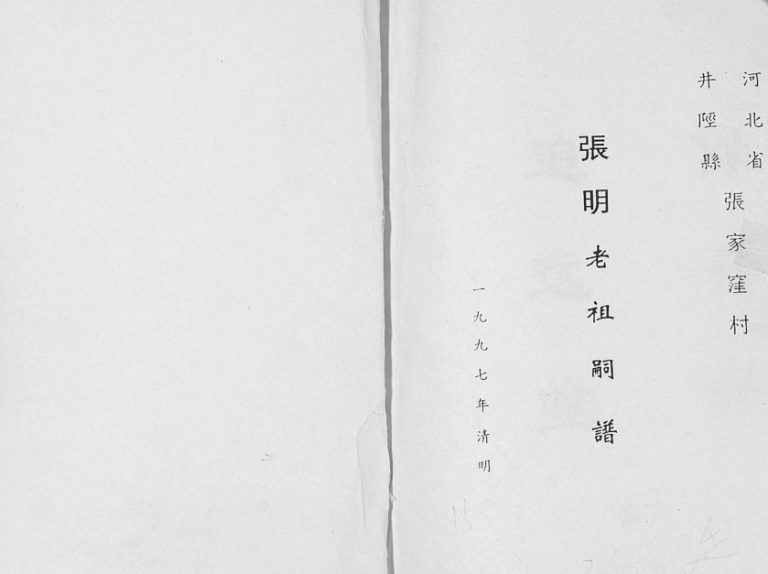 河北省
井陘縣
張家窪村
張明老祖嗣譜
一九九七年清明